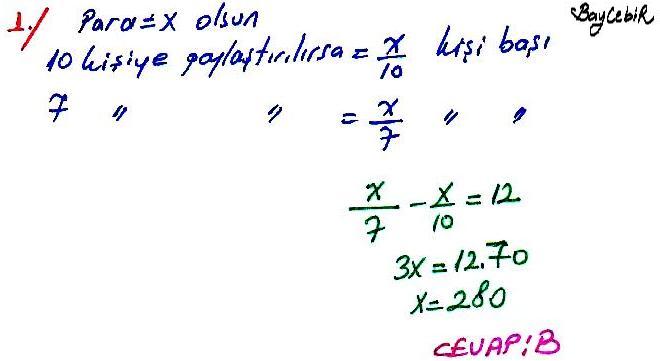 BayCebiR
1./ Para = x olsun
10 kişiye paylaştırılırsa = x/10 kişi başı
7 " " = x/7 " "
x/7 - x/10 = 12
3x = 12.70
x = 280
CEVAP: B